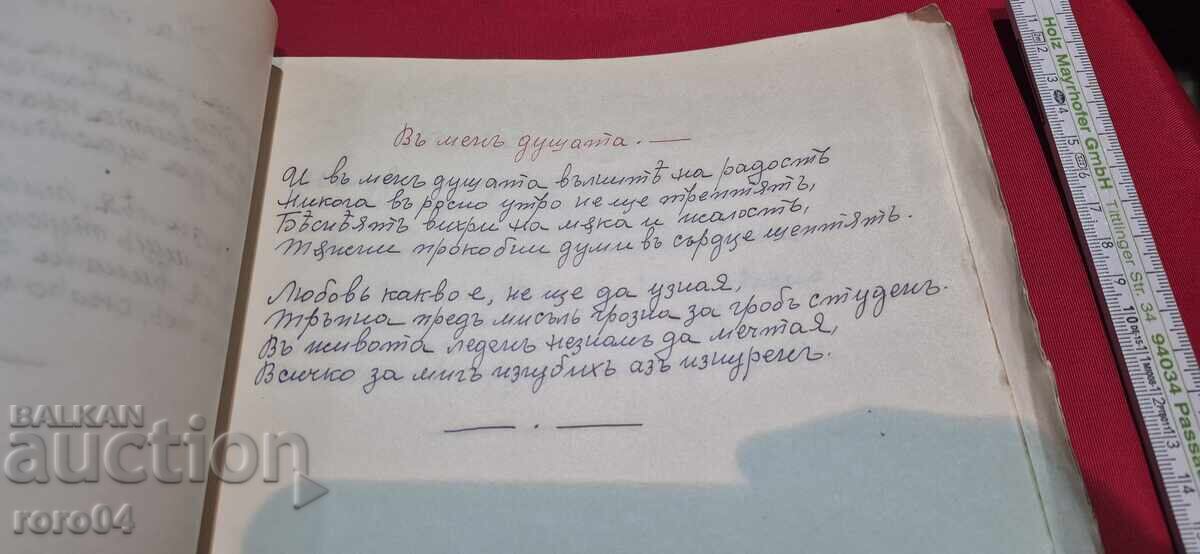 Въ менъ душата.—
И въ менъ душата вълнитѣ на радость
Никога въ росно утро не ще трептятъ,
Бѣснѣятъ вихри на мѫка и жалость,
Тѫжни прокобни думи въ сърдце шептятъ.
Любовь какво е, не ще да узная,
Тръпна предъ мисъль грозна за гробъ студенъ.
Въ живота леденъ незнамъ да мечтая,
Всичко за мигъ изгубихъ азъ изнуренъ.
BALKAN
auction
roro04
Holz Mayrhofer GmbH Tittlinger Str. 34 94034 Passa
1 2 3 4 5 6 7 8 9 10 11 12 13 14